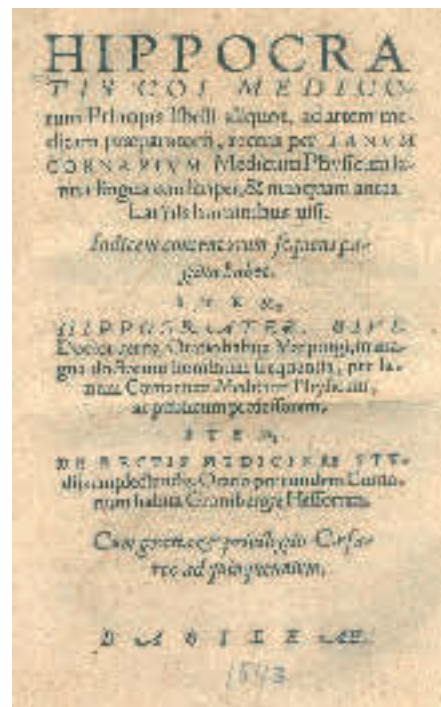 HIPPOCRA
TIS COI MEDICO-
rum Principis libelli aliquot, ad artem me-
dicam præparatorii, recens per IANVM
CORNARIVM Medicum Physicum la-
tina lingua conscripti, & nunquam antea
Latinis hominibus uisi.
Indicem contentorum sequens pa-
gina habet.
ITEM,
HIPPOCRATES, SIVE
Doctor uerus, Oratio habita Marpurgi, in ma-
gna doctorum hominum frequentia, per Ia-
num Cornarium Medicum Physicum,
ac publicum professorem.
ITEM,
DE RECTIS MEDICINAE STV-
dijs amplectendis, Oratio per eundem Corna-
rium habita Grunibergæ Hessorum.
Cum gratia & privilegio Cæsa-
reo ad quinquennium.
BASILEAE.
1543